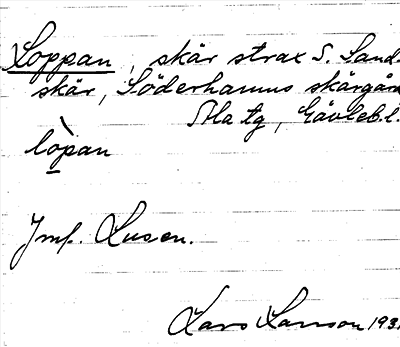 Loppan, skär strax S. Sand-
skär, Söderhamns skärgård
Ala tg, Gävleb.l.
lòpan
Jmf. Lusen.
Lars Larsson 193